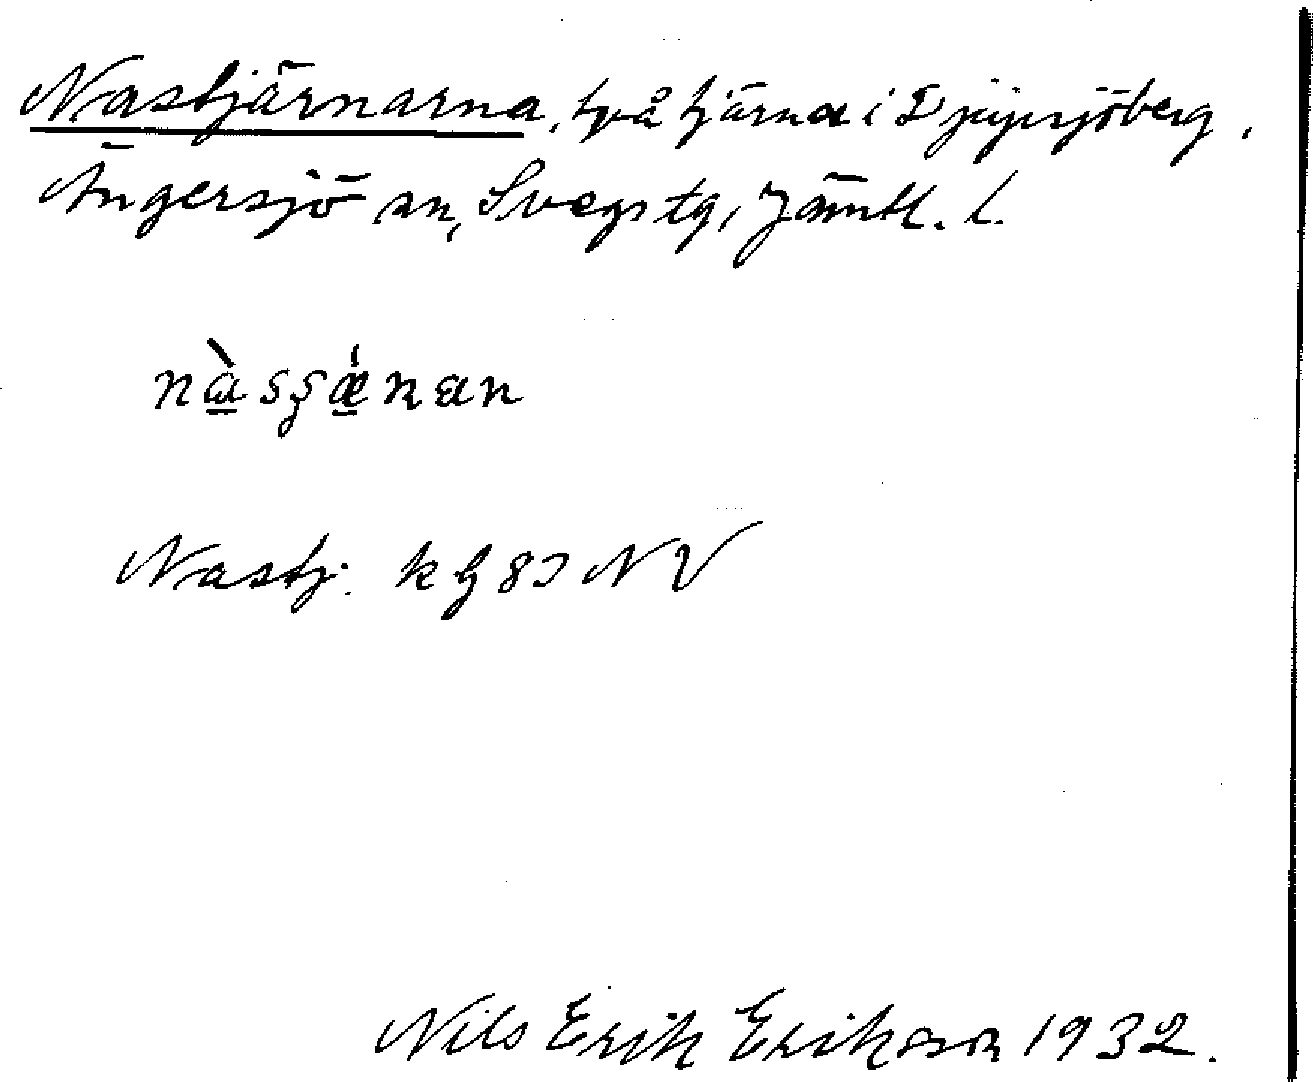 Nastjärnarna, två tjärnar i Djupsjöberg,
Ängersjö sn, Svegs tg, Jämtl. l.
Nastj. kg 83 NV
Nils Erik Eriksson 1932.